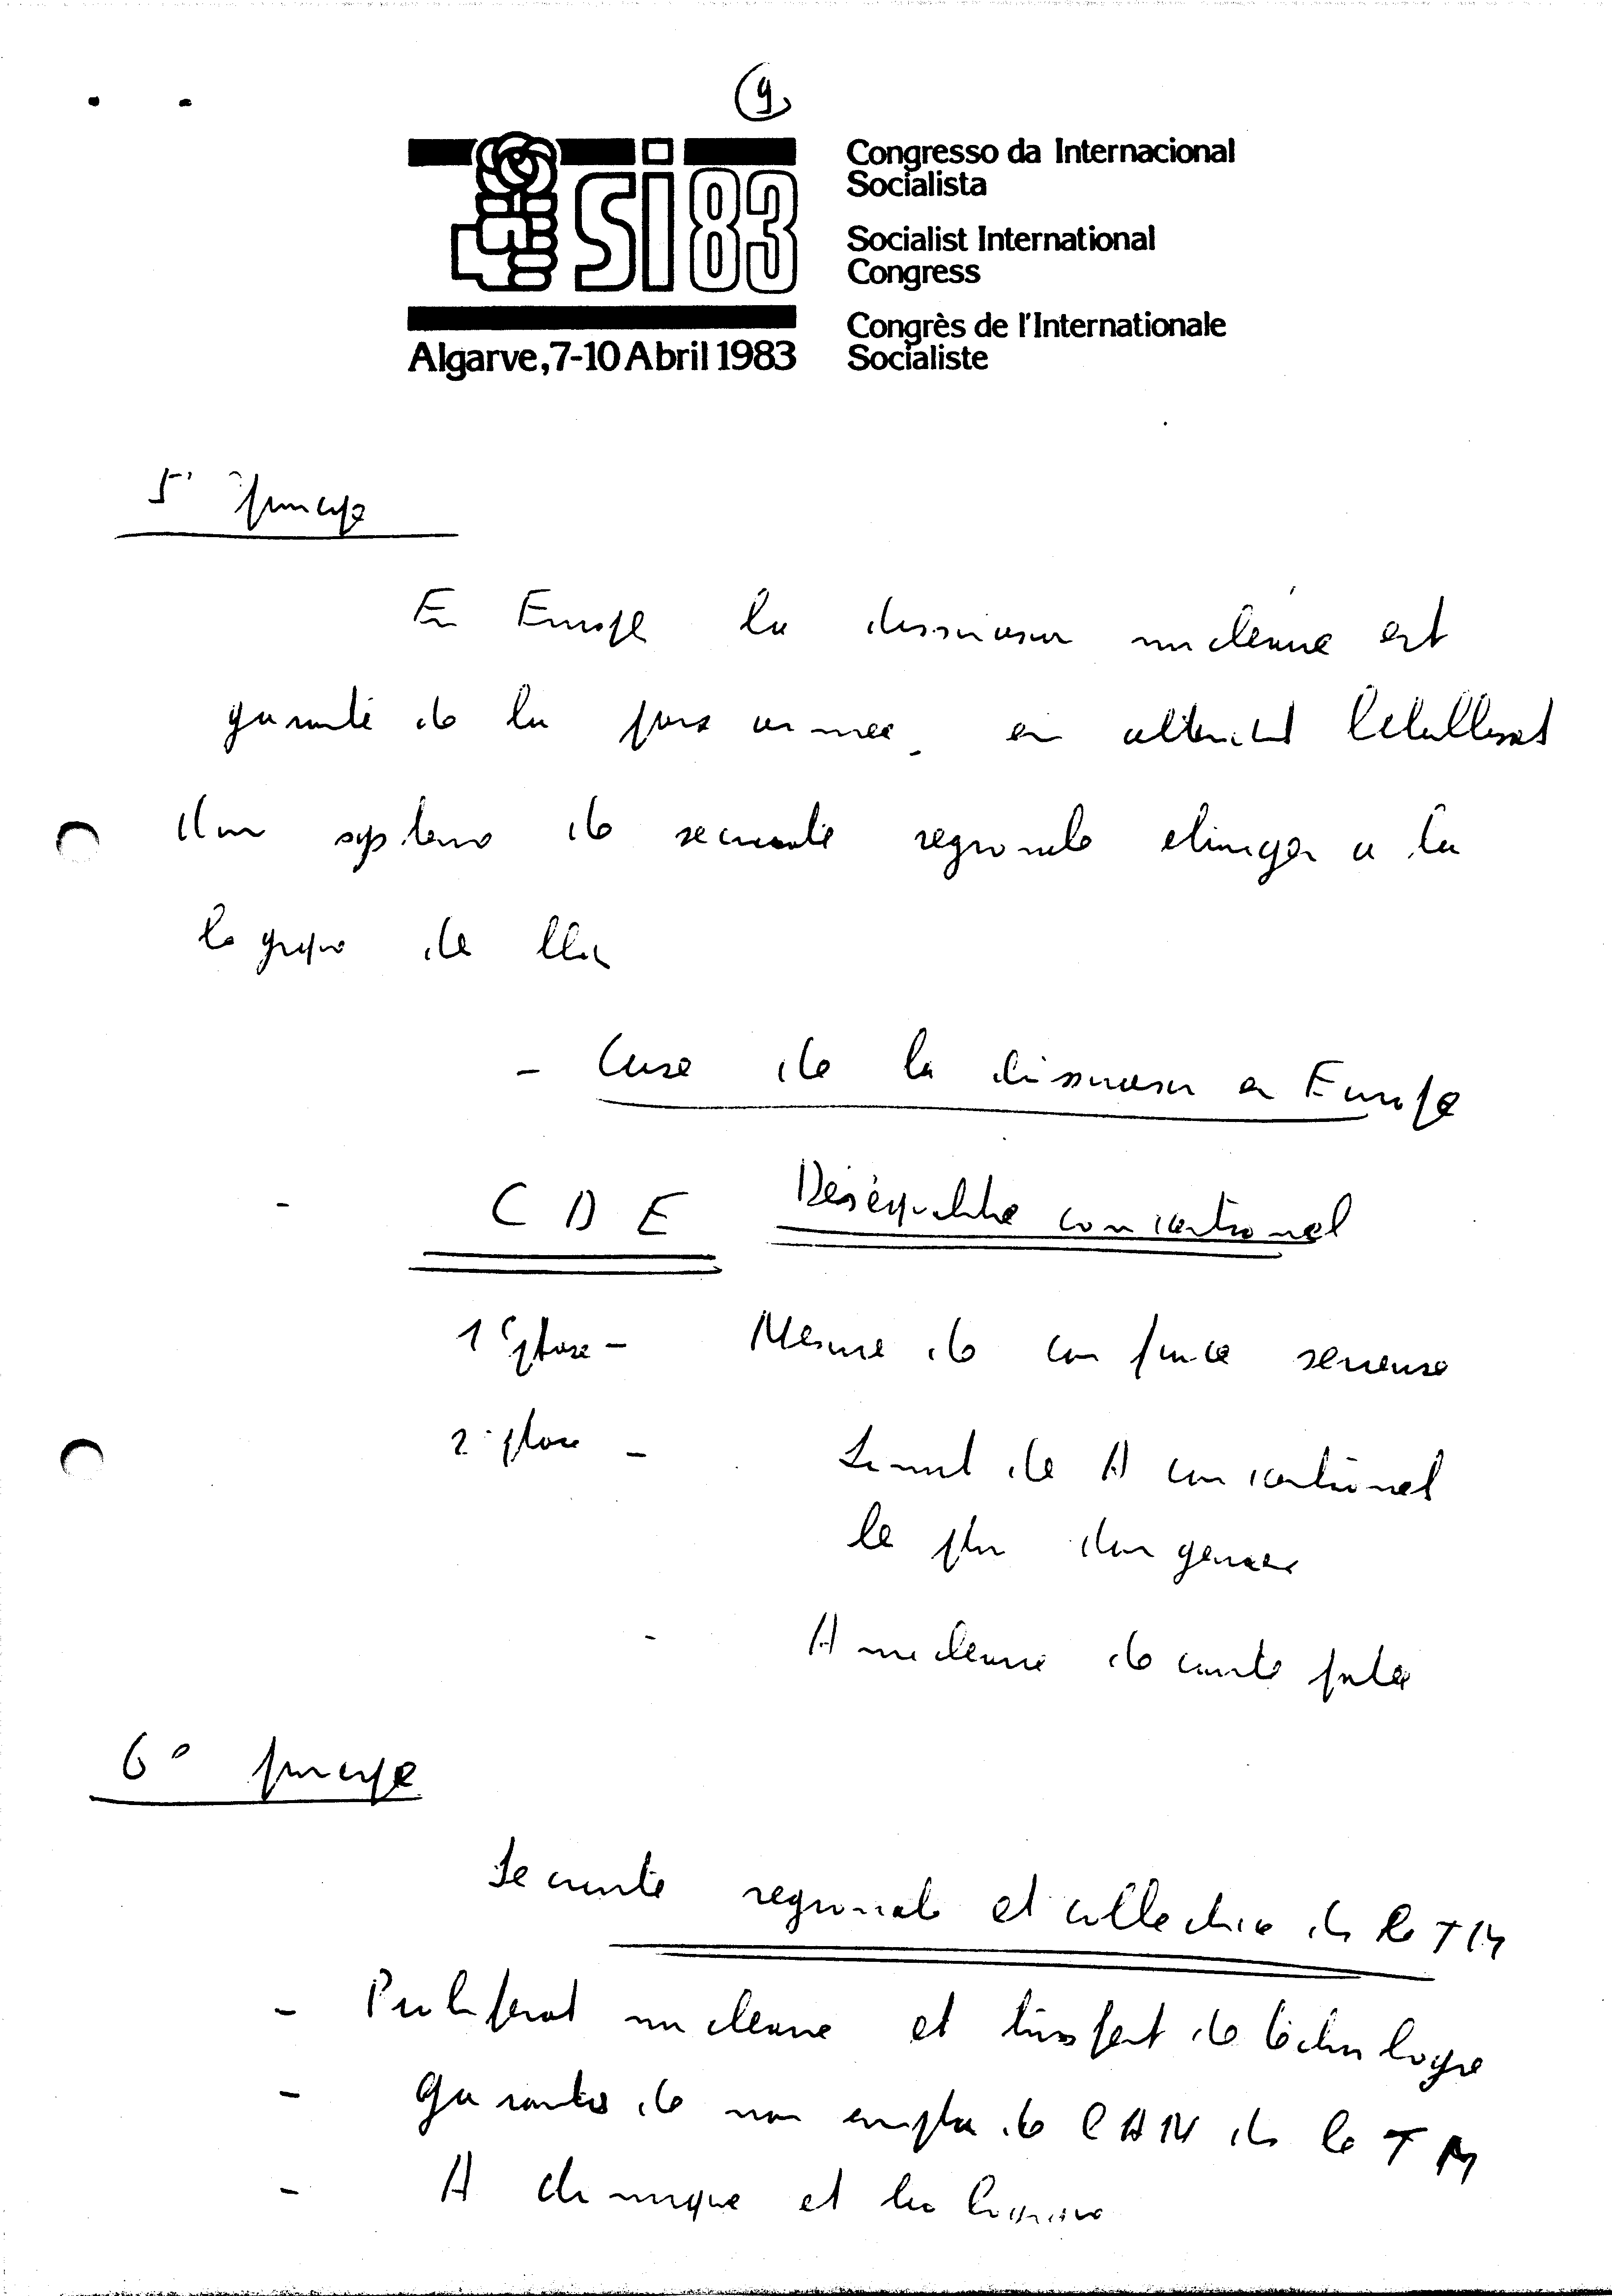 9
SI 83
Algarve, 7-10 Abril 1983
Congresso da Internacional
Socialista
Socialist International
Congress
Congrès de l'Internationale
Socialiste
5° principe
En Europe la dissuasion nucleaire est
garante de la paix armee en attendant l'etablissement
d'un systeme de securité regionale etranger a la
logique de bloc
- Crise de la dissuasion en Europe
- C D E Déséquilibre conventionnel
1e phase - Mesure de confiance serieuse
2e phase - Limit de A conventionnel
le plus dangereux
- A nucleaire de courte portée
6° principe
Securité regionale et collective ds le T M
- Proliferat nucleaire et transfert de technologie
- garantie de non emploi de l'AN ds le T M
- A chimique et biologique